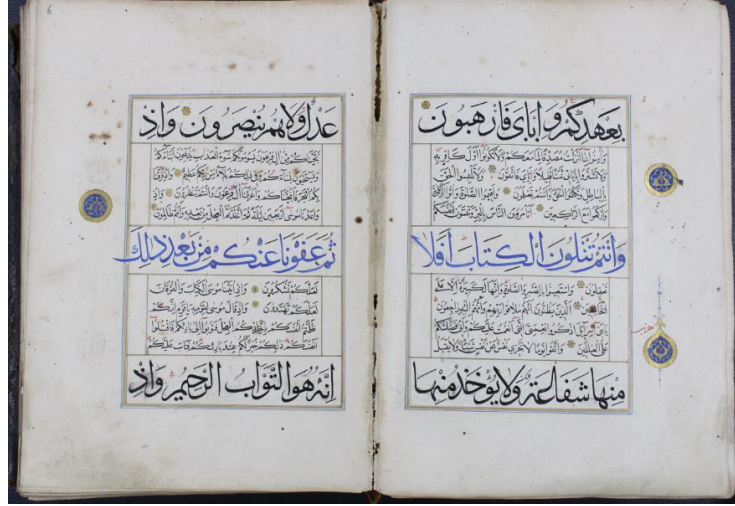 بعهدكم واياى فارهبون
وآمنوا بما انزلت مصدقا لما معكم ولا تكونوا اول كافر به
ولا تشتروا باياتى ثمنا قليلا واياى فاتقون ولا تلبسوا الحق
بالباطل وتكتموا الحق وانتم تعلمون واقيموا الصلوة واتوا الزكوة
واركعوا مع الراكعين اتامرون الناس بالبر وتنسون انفسكم
وانتم تتلون الكتاب افلا
تعقلون واستعينوا بالصبر والصلوة وانها لكبيرة الا على
الخاشعين الذين يظنون انهم ملاقوا ربهم وانهم اليه راجعون
يا بنى اسرائيل اذكروا نعمتى التى انعمت عليكم وانى فضلتكم
على العالمين واتقوا يوما لا تجزى نفس عن نفس شيئا ولا يقبل
منها شفاعة ولا يؤخذ منها
حزب
6
عدل ولا هم ينصرون واذ
نجيناكم من ال فرعون يسومونكم سوء العذاب يذبحون ابناءكم
ويستحيون نساءكم وفى ذلكم بلاء من ربكم عظيم واذ فرقنا
بكم البحر فانجيناكم واغرقنا ال فرعون وانتم تنظرون واذ
واعدنا موسى اربعين ليلة ثم اتخذتم العجل من بعده وانتم ظالمون
ثم عفونا عنكم من بعد ذلك
لعلكم تشكرون واذ اتينا موسى الكتاب والفرقان
لعلكم تهتدون واذ قال موسى لقومه يا قوم انكم
ظلمتم انفسكم باتخاذكم العجل فتوبوا الى بارئكم فاقتلوا
انفسكم ذلكم خير لكم عند بارئكم فتاب عليكم
انه هو التواب الرحيم واذ